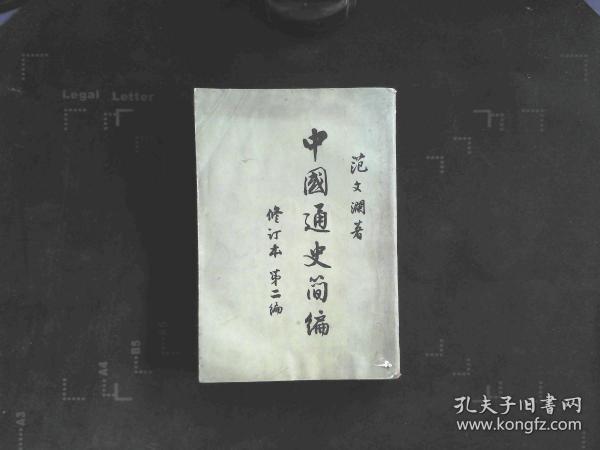 范文澜著
中國通史简编
修订本 第二编
Legal Letter
A4
B5
A5
A3
孔夫子旧书网
www.kongfz.com